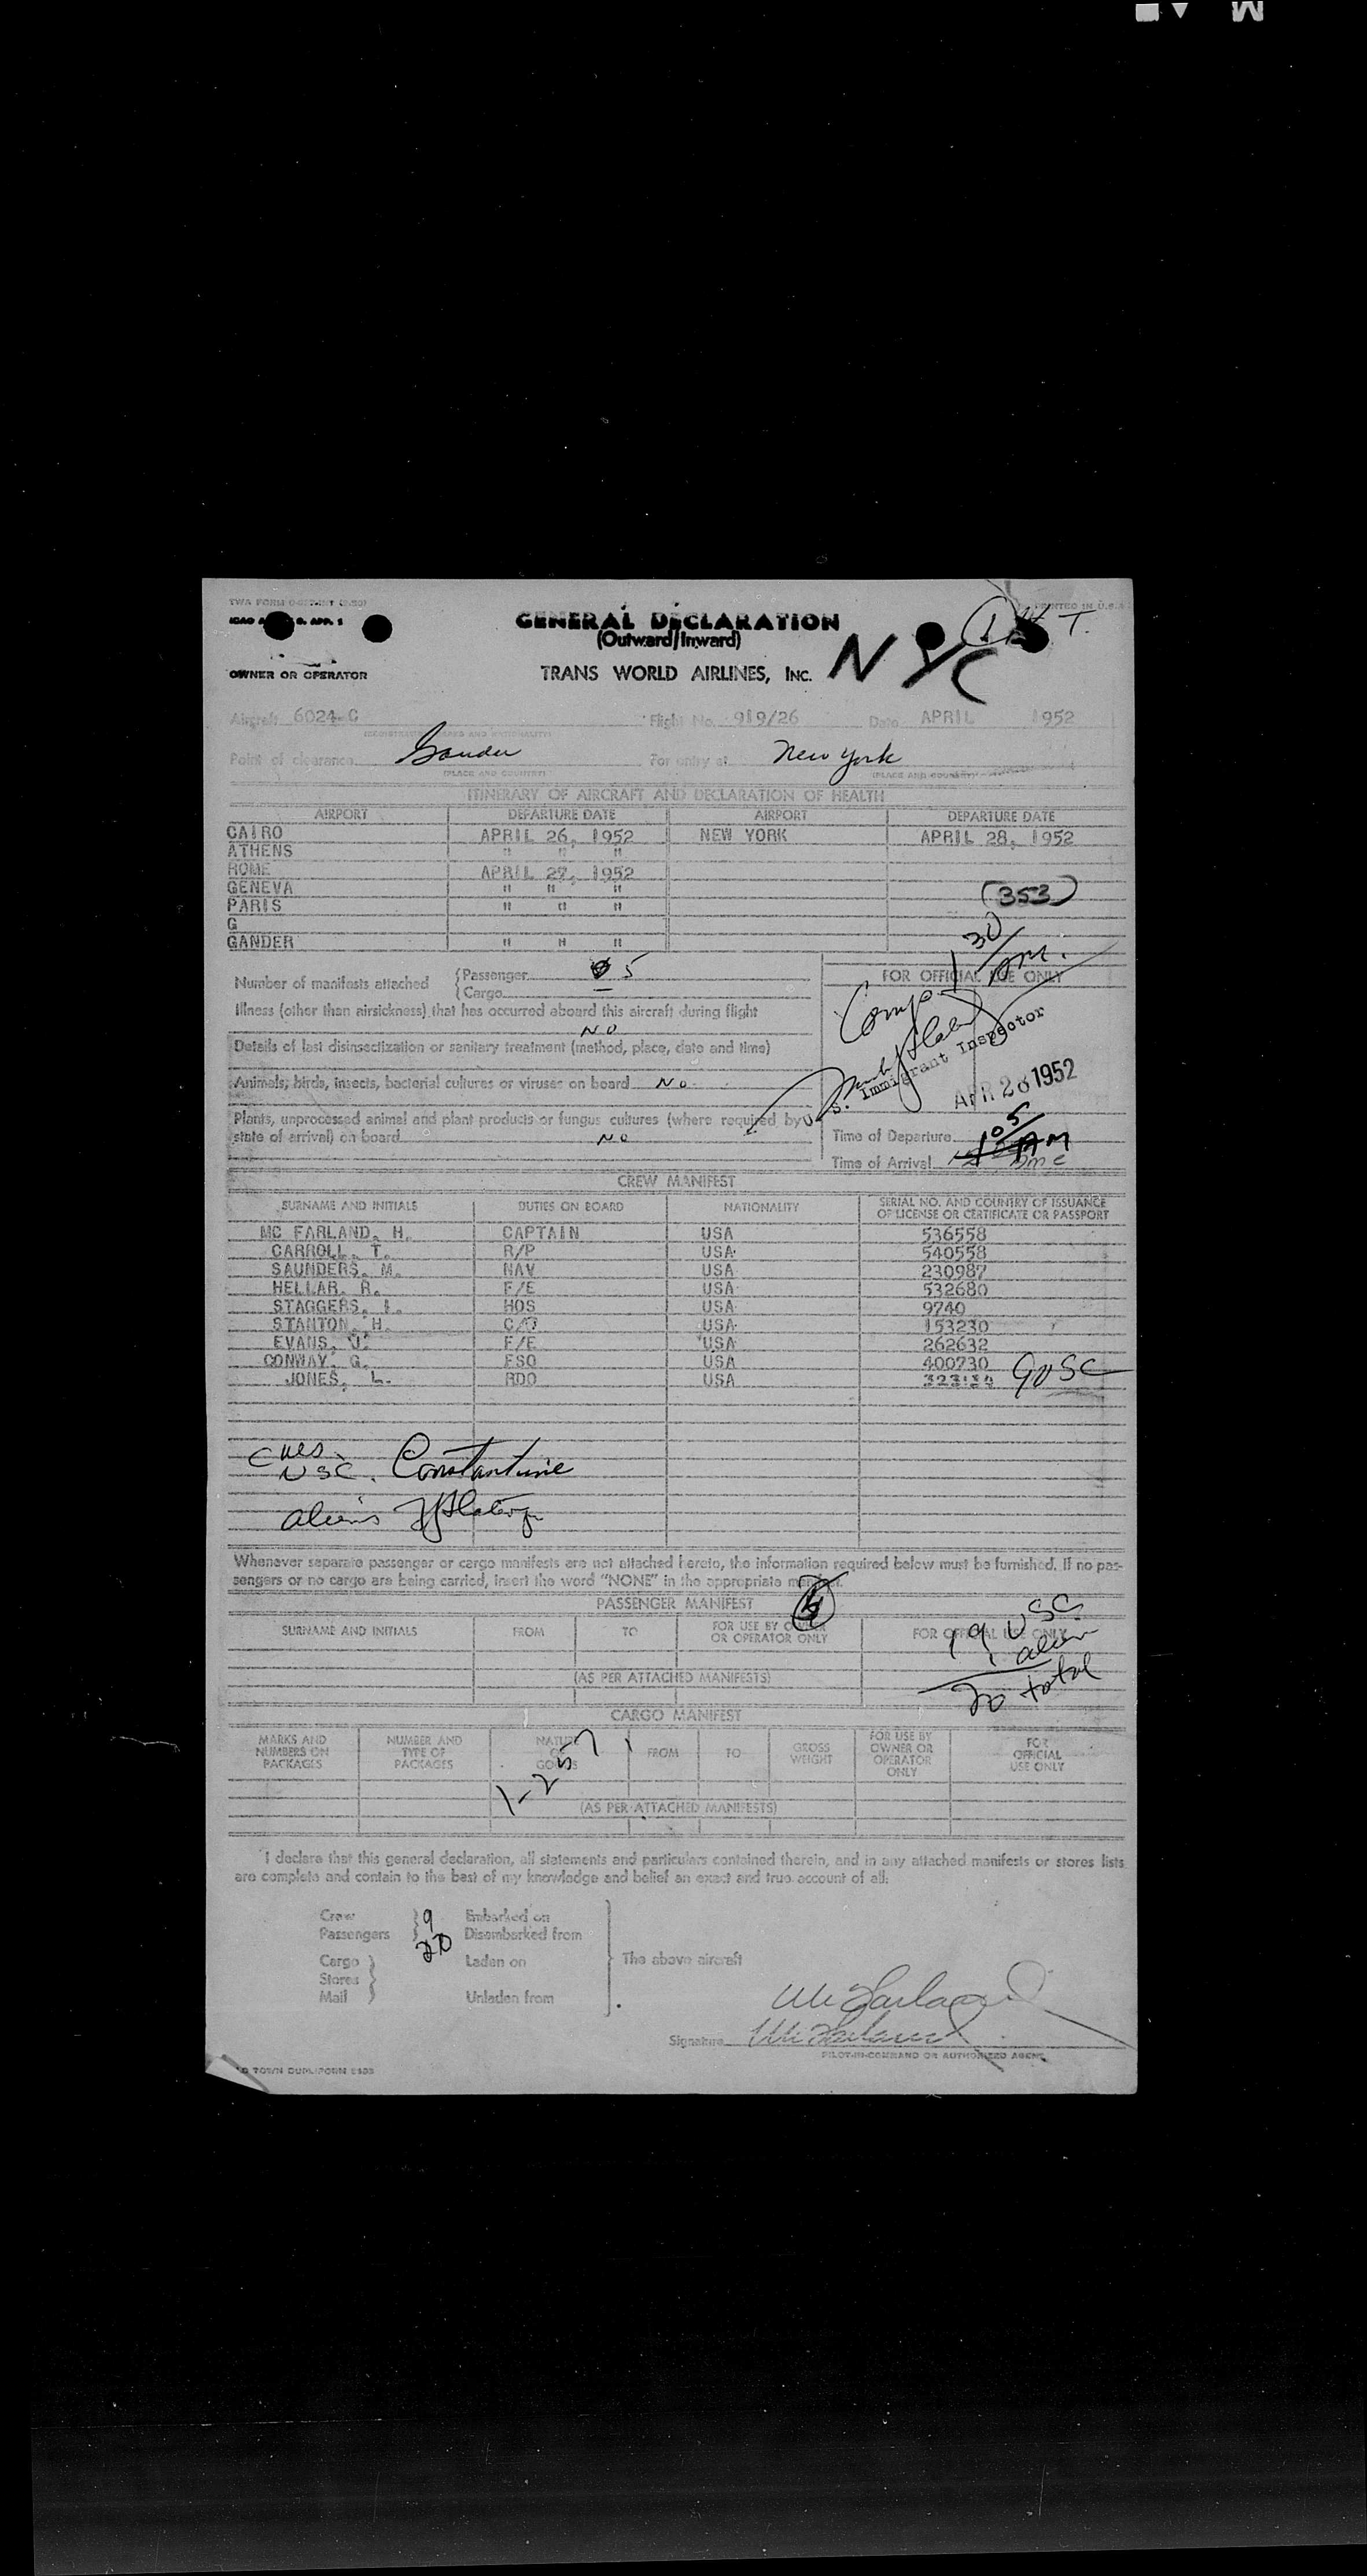 PRINTED IN U.S.A.
GENERAL DECLARATION
(Outward/Inward)
OWNER OR OPERATOR
TRANS WORLD AIRLINES, INC.
NYC
Aircraft 6024-C Flight No. 919/26 Date APRIL 1952
Point of clearance Gander For entry at New York
(PLACE AND COUNTRY) (PLACE AND COUNTRY)
ITINERARY OF AIRCRAFT AND DECLARATION OF HEALTH
AIRPORT DEPARTURE DATE AIRPORT DEPARTURE DATE
CAIRO APRIL 26, 1952 NEW YORK APRIL 28, 1952
ATHENS " " "
ROME APRIL 27, 1952
GENEVA " " "
PARIS " " "
(353)
G
GANDER " " "
Number of manifests attached { Passenger 5
{ Cargo
FOR OFFICIAL USE ONLY
Comp. 1 30
Illness (other than airsickness) that has occurred aboard this aircraft during flight
NO
Details of last disinsectization or sanitary treatment (method, place, date and time)
U.S. Immigrant Inspector
Animals, birds, insects, bacterial cultures or viruses on board NO
APR 28 1952
Plants, unprocessed animal and plant products or fungus cultures (where required by
state of arrival) on board NO
Time of Departure
105 AM
Time of Arrival
CREW MANIFEST
SURNAME AND INITIALS DUTIES ON BOARD NATIONALITY SERIAL NO. AND COUNTRY OF ISSUANCE
OF LICENSE OR CERTIFICATE OR PASSPORT
MC FARLAND, H. CAPTAIN USA 536558
CARROLL, T. R/P USA 540558
SAUNDERS, M. NAV USA 230987
HELLAR, R. F/E USA 532680
STAGGERS, I. HOS USA 9740
STANTON, H. C/O USA 153230
EVANS, J. F/E USA 262632
CONWAY, G. FSO USA 400730
JONES, L. RDO USA 9 USC
USC. Constantine
aliens
Whenever separate passenger or cargo manifests are not attached hereto, the information required below must be furnished. If no pas-
sengers or no cargo are being carried, insert the word "NONE" in the appropriate manifest.
PASSENGER MANIFEST
SURNAME AND INITIALS FROM TO FOR USE BY OWNER
OR OPERATOR ONLY FOR OFFICIAL USE ONLY
19 USC.
1 alien
20 total
(AS PER ATTACHED MANIFESTS)
CARGO MANIFEST
MARKS AND
NUMBERS ON
PACKAGES NUMBER AND
TYPE OF
PACKAGES NATURE
OF
GOODS FROM TO GROSS
WEIGHT FOR USE BY
OWNER OR
OPERATOR
ONLY FOR
OFFICIAL
USE ONLY
1-257
(AS PER ATTACHED MANIFESTS)
I declare that this general declaration, all statements and particulars contained therein, and in any attached manifests or stores lists
are complete and contain to the best of my knowledge and belief an exact and true account of all:
Crew } 9 Embarked on
Passengers } 20 Disembarked from
Cargo } Laden on The above aircraft
Stores }
Mail } Unladen from
McFarland
Signature McFarland
PILOT-IN-COMMAND OR AUTHORIZED AGENT